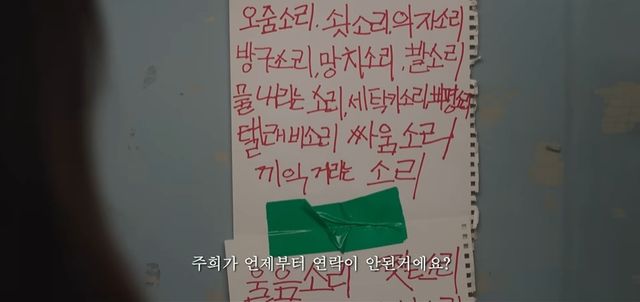 오줌소리. 쇳소리, 의자소리
방구소리, 망치소리, 발소리
물 소리, 세탁기소리,
텔레비소리 싸움소리
끼익 거리는 소리
주희가 언제부터 연락이 안된거에요?
울음소리